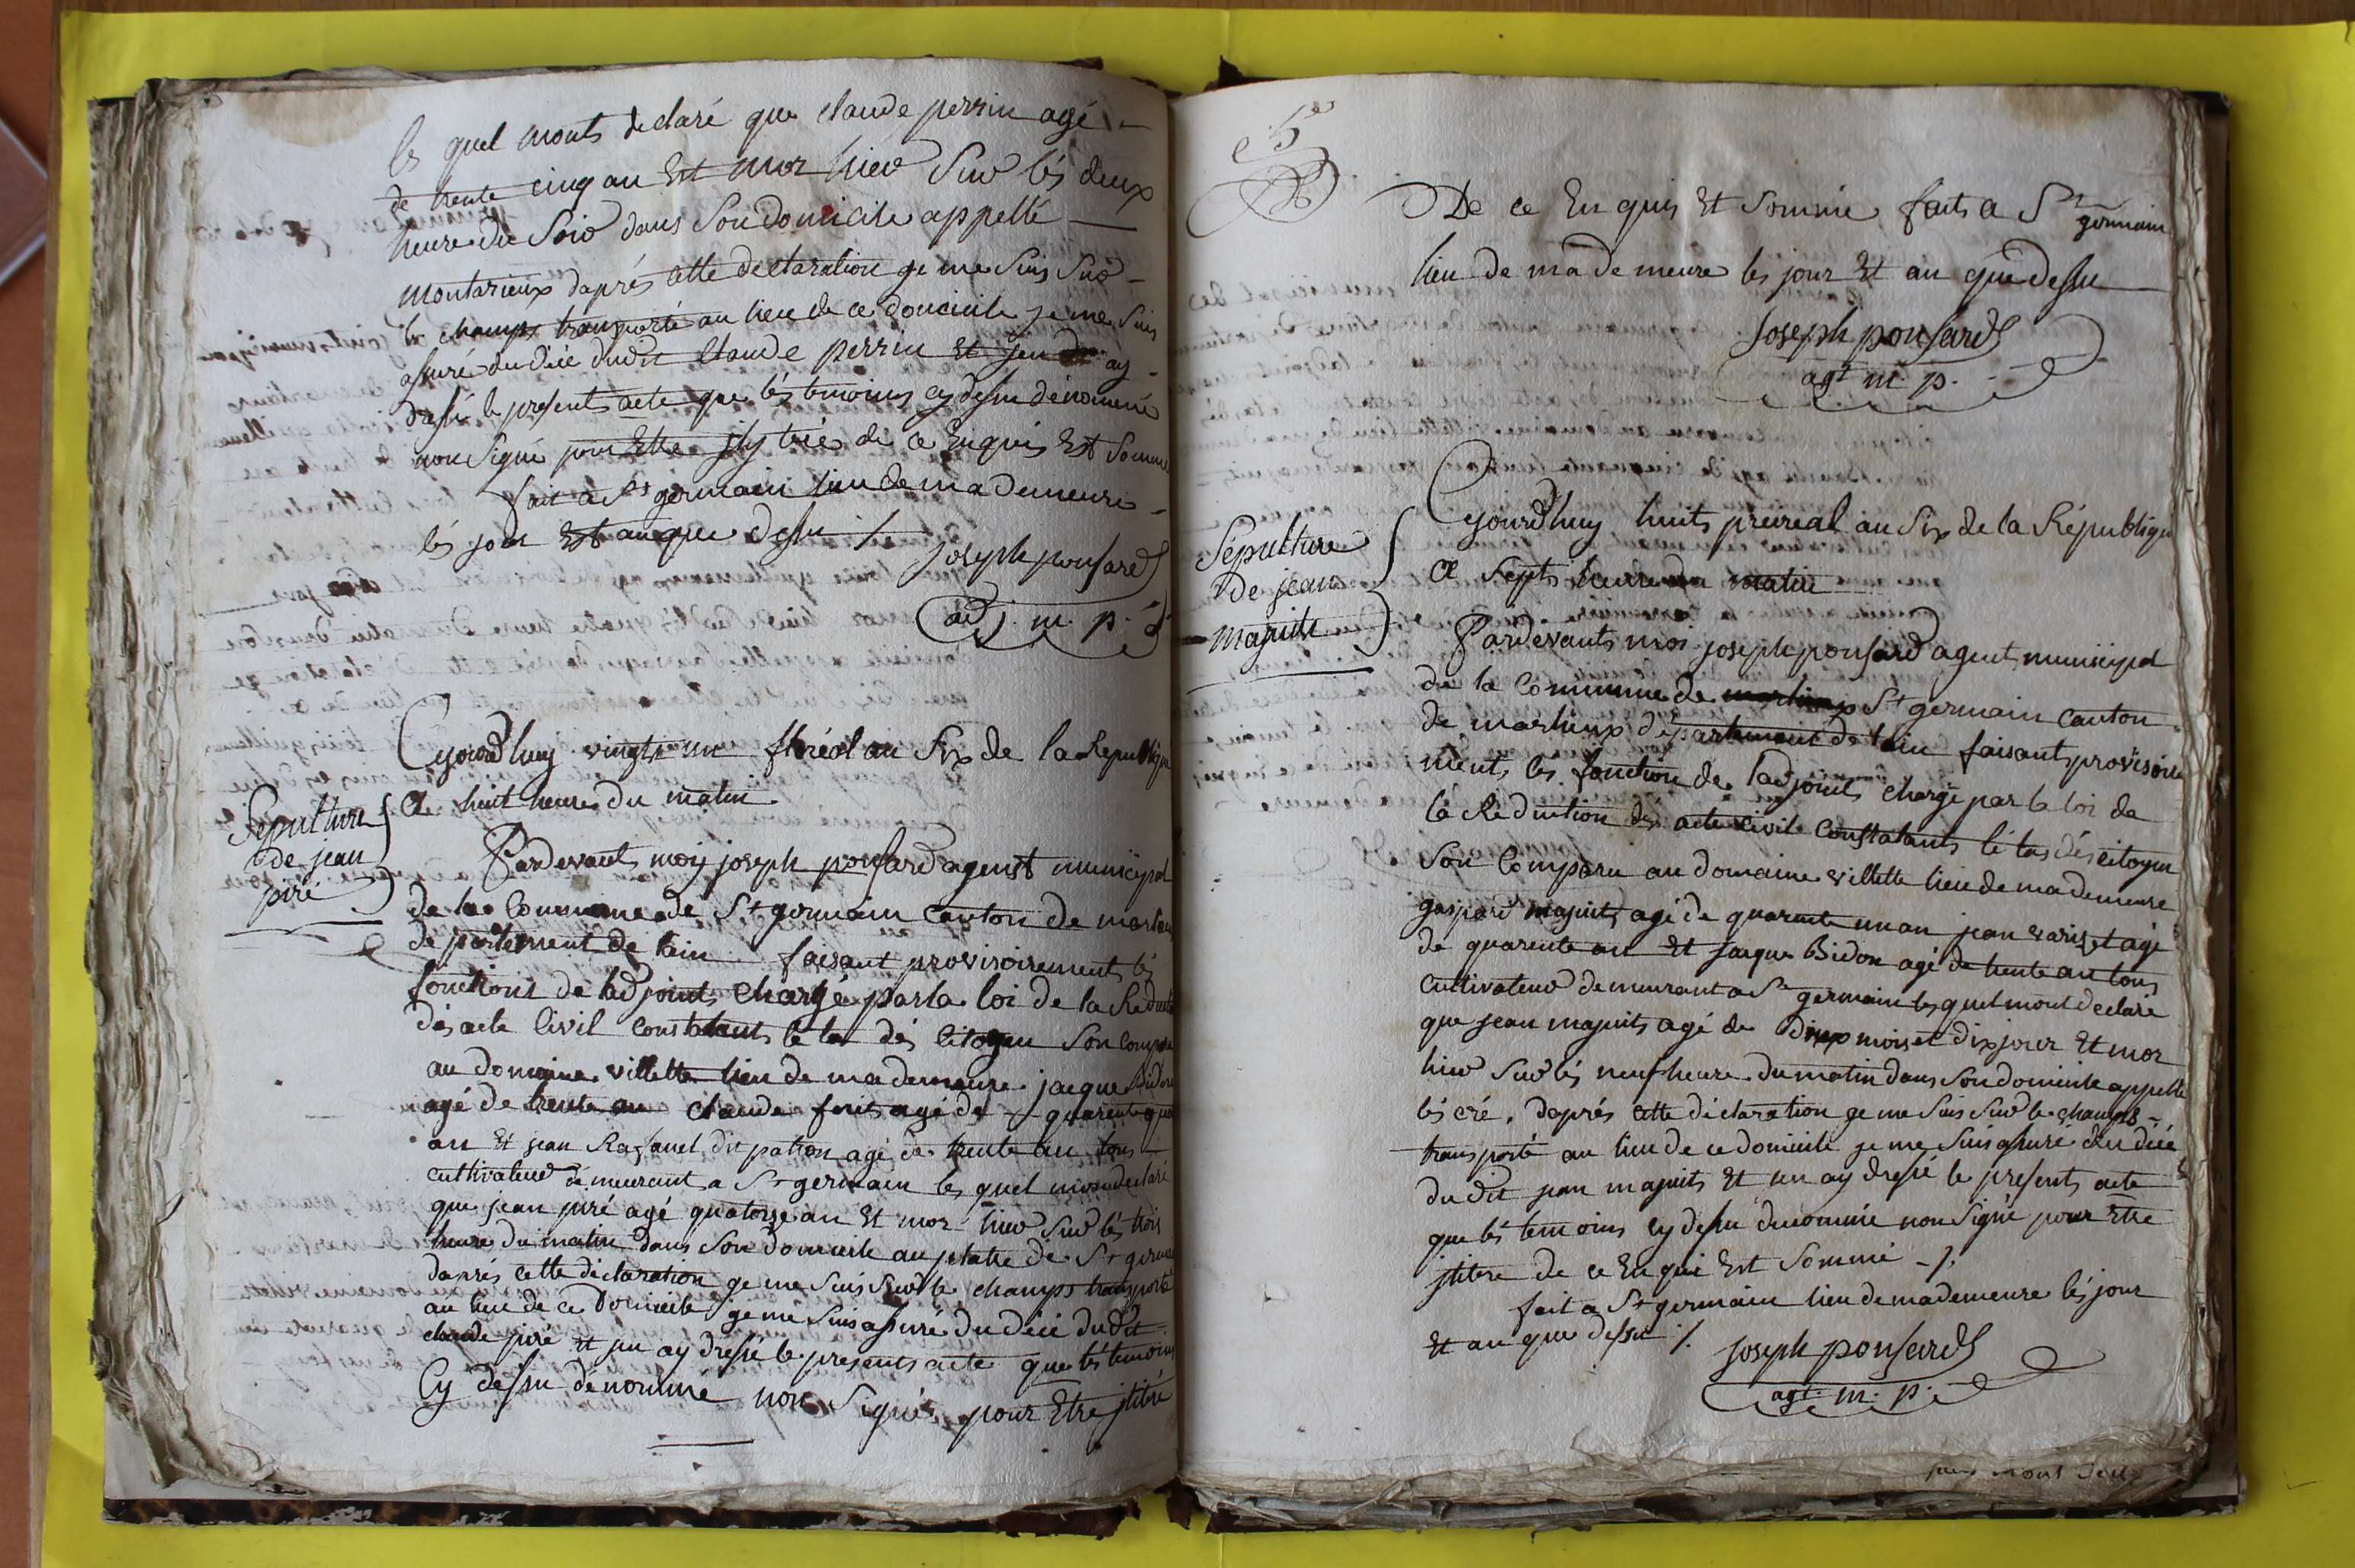 les quel monts declaré que claude perrin agé
de trente cinq an Est mor hier Sur lés deux
heure du Soir dans Son domicile appellé
montarieux daprés cette declaration ge me Suis Sur
le champs transporté au lieu de ce domicile je me Suis
assuré du décé dudit Claude perrin Et jen ay
dressé le presents acte que lés temoins cy dessu dénommé
non Signé pour Etre de ce Enquis Est Sommé
fait a St germain lieu de ma demeure
lés jour Est an que dessu ./.
joseph ponsard
adj. m. p.
Cejourdhuy vingt un floréal an Six de la Republique
A huit heure du matin
Sepulture
de jean
piré
Pardevants moy joseph ponsard agenst municipal
de la Commune de St germain canton de
departement de lain faisant provisoirements lés
fonctions de ladjoints chargé par la loi de la
dés acte Civil constatants le ta dés Citoyen Son
au domaine villette lieu de ma demeure jacque Bidon
agé de trente an claude fort agé de quarente
an Et jean Rafanel dit patton agé de trente an tous
cultivateur demeurant a St germain les quel
que jean piré agé quatorze an Et mor hier Sur lés trois
heure du matin dans Son domicile au platre de St
daprés cette déclaration ge me Suis Sur le champs transporté
au lieu de ce Domicile ge me Suis assuré du décé dudit
claude piré Et jen ay dressé le presents acte que lés temoins
Cy dessu dénommé non Signé pour Etre jlitiré
De ce Enquis Et Sommé faits a St germain
lieu de ma demeure les jour Et an que dessu
Joseph ponsard
agt m. p.
Sépulture
de jean
majuits
Cejourdhuy huits preireal an Six de la République
A Septs heure du matin
Pardevants moi joseph ponsard agent municipal
de la Commune de St germain canton
de marlieux département de lain faisants provisoire
ments lés fonction de ladjoints chargé par la loi de
la Réduction dés acte civil Constatants lé tas dés citoyen
Son Comparu au domaine villette lieu de ma demeure
gaspard majuits agé de quarente un an jean agé
de quarente an Et Jacque Bidon agé de trente an tous
cultivateur demeurant a St germain les quel mont declaré
que jean majuits agé de mois et dix jour Et mor
hier Sur lés neuf heure du matin dans Son domicile appellé
lés cré, daprés cette déclaration ge me Suis Sur le champs
transporté au lieu de ce domicile je me Suis assuré du décé
du dit jean majuits Et en ay dressé le presents acte
que lés temoins cy dessu denommé non Signé pour Etre
jlitere de ce Enqui Est Sommé ./.
fait a St germain lieu de ma demeure lés jour
Et an que dessu ./.
joseph ponsard
agt. m. p.